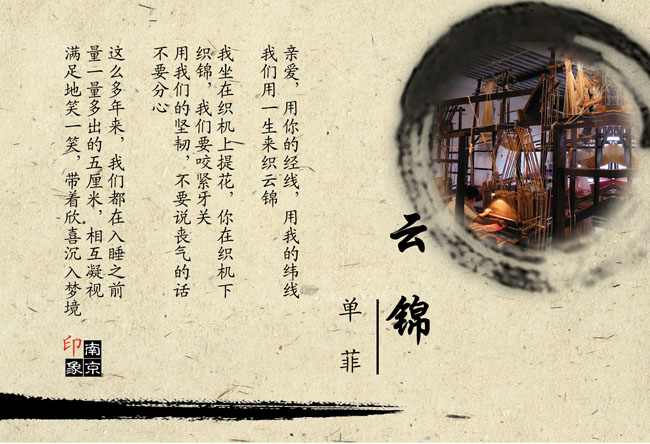 云锦
单菲
亲爱，用你的经线，用我的纬线
我们用一生来织云锦
我坐在织机上提花，你在织机下
织锦，我们要咬紧牙关
用我们的坚韧，不要说丧气的话
不要分心
这么多年来，我们都在入睡之前
量一量多出的五厘米，相互凝视
满足地笑一笑，带着欣喜沉入梦境
南京
印象